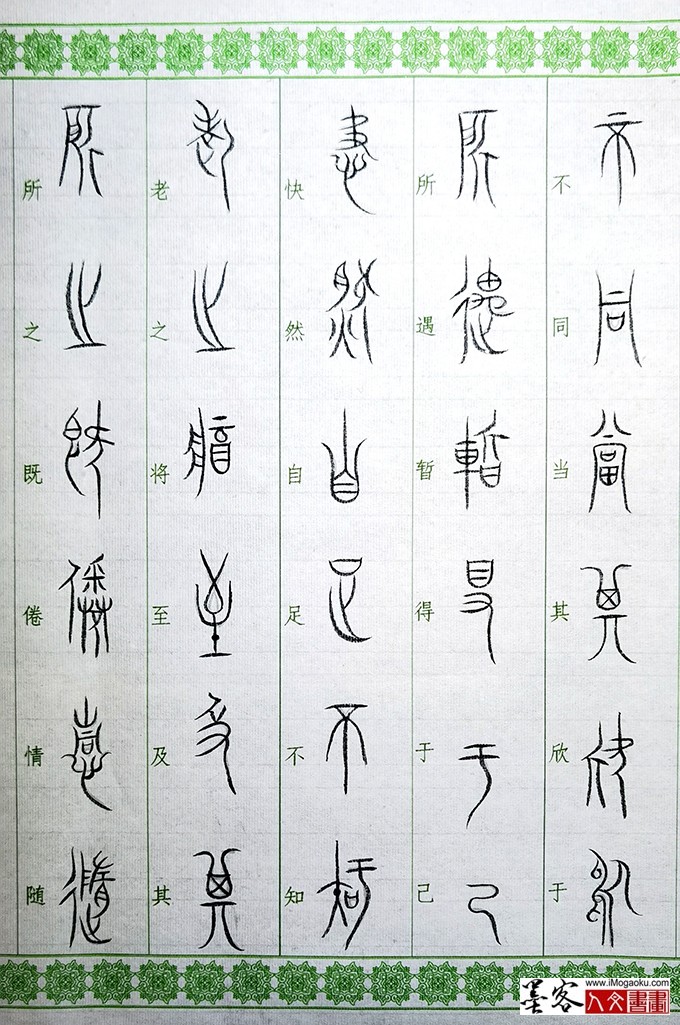 不同当其欣于
所遇暂得于己
快然自足不知
老之将至及其
所之既倦情随
墨客
www.iMogaoku.com
人文書畫